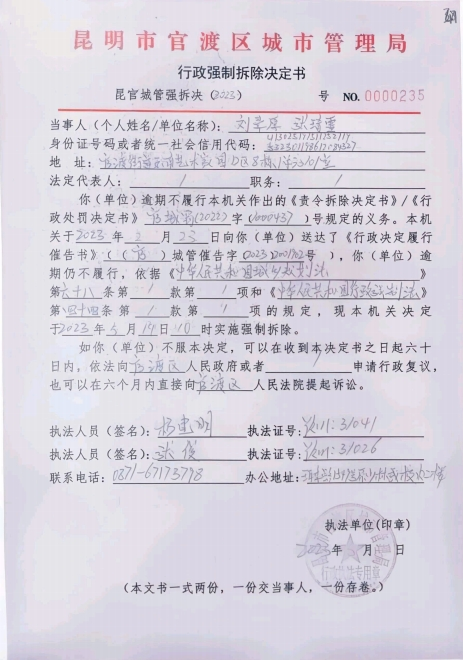 昆明市官渡区城市管理局
行政强制拆除决定书
昆官城管强拆决（2023） 号 NO.0000235
当事人（个人姓名/单位名称）：
身份证号码或者统一社会信用代码：
地 址：
法定代表人： / 职务： /
你（单位）逾期不履行本机关作出的《责令拆除决定书》/《行
政处罚决定书》官城罚(2022)字(000437)号规定的义务。本机
关于2023年2月23日向你（单位）送达了《行政决定履行
催告书》（（官）城管催告字(2023)2001702号），你（单位）逾
期仍不履行，依据《中华人民共和国城乡规划法》
第六十八条第1款第1项和《中华人民共和国行政强制法》
第四十四条第1款第1项的规定，现本机关决定
于2023年3月14日10时实施强制拆除。
如你（单位）不服本决定，可以在收到本决定书之日起六十
日内，依法向官渡区人民政府或者 / 申请行政复议，
也可以在六个月内直接向官渡区人民法院提起诉讼。
执法人员（签名）：杨 明 执法证号：31041
执法人员（签名）：张俊 执法证号：31026
联系电话：0871-67173798 办公地址：
执法单位（印章）
2023年 月 日
（本文书一式两份，一份交当事人，一份存卷。）